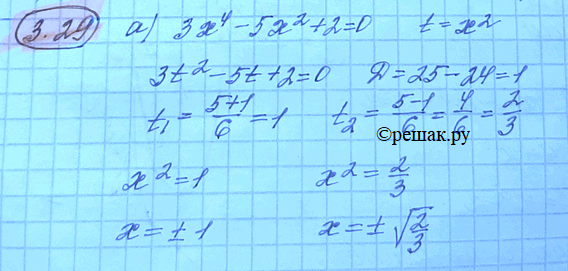 3.29 а) 3x⁴ - 5x² + 2 = 0 t = x²
3t² - 5t + 2 = 0 Д = 25 - 24 = 1
t₁ = (5+1)/6 = 1 t₂ = (5-1)/6 = 4/6 = 2/3
©решак.ру
x² = 1 x² = 2/3
x = ± 1 x = ± √(2/3)